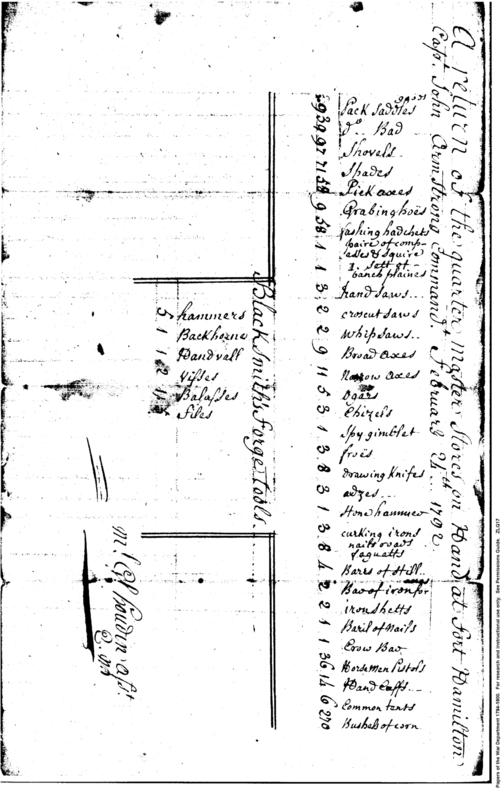 A return of the quarter master Stores on Hand at Fort Hamilton
Capt. John Armstrong Command February 4th 1792
Pack Saddles good
do. Bad
Shovels
Spades
Pick axes
Grabing hoes
fashing hadchets
paire of comp-
asses & squire
1. sett of
banch plaines
hand saws
croscut saws
whip saws
Broad axes
Narrow axes
Ogars
Chizels
Spy gimblet
froes
drawing Knifes
adzes
Stone hammer
curking irons
nails roads
Barrs of Still
Bar of iron for
iron shetts
Baril of Nails
Crow Bar
Horsemen Pistols
Hand Cuffs
Common tents
Bushels of corn
9 34 97 71 54 9 58 1 1 3 2 2 9 11 5 3 1 3 8 3 1 3 8 4 2 2 1 1 36 14 6 270
Black Smiths Forge Tools
hammers
Backhorne
Hand
Visses
Balasses
files
5 1 1 2 1
Q. M.
Papers of the War Department 1784-1800. For research and instructional use only. See Permissions Guide. ZLG17